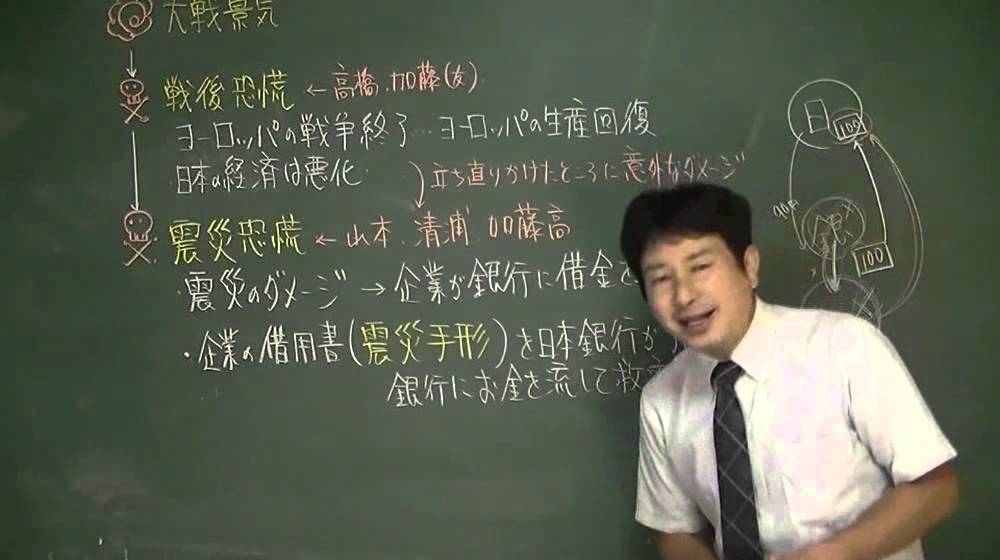 大戦景気
戦後恐慌 ← 高橋、加藤(友)
ヨーロッパの戦争終了…ヨーロッパの生産回復
日本の経済は悪化
立ち直りかけたところに意外なダメージ
震災恐慌 ← 山本、清浦、加藤高
・震災のダメージ → 企業が銀行に借金を
・企業の借用書(震災手形)を日本銀行が
銀行にお金を流して救済
日
100
90円
銀
100